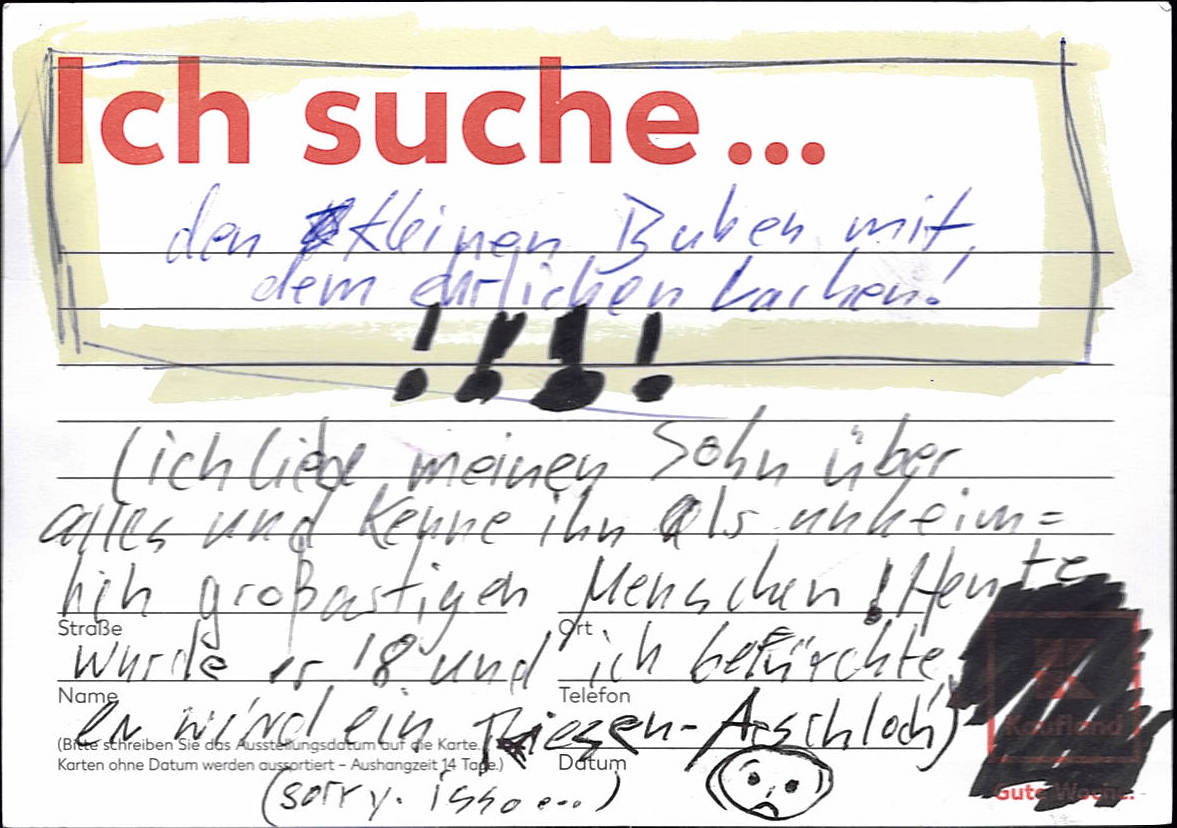 Ich suche...
den kleinen Buben mit
dem ehrlichen Lachen!
!!!!
(ich liebe meinen Sohn über
alles und kenne ihn als unheim=
lich großartigen Menschen! Heute
Straße
Ort
wurde er 18 und ich befürchte,
Name
Telefon
er wird ein Riesen-Arschloch)
(Bitte schreiben Sie das Ausstellungsdatum auf die Karte.
Karten ohne Datum werden aussortiert – Aushangzeit 14 Tage.)
Datum
Kaufland
(sorry. isso...)
Gute Woche.